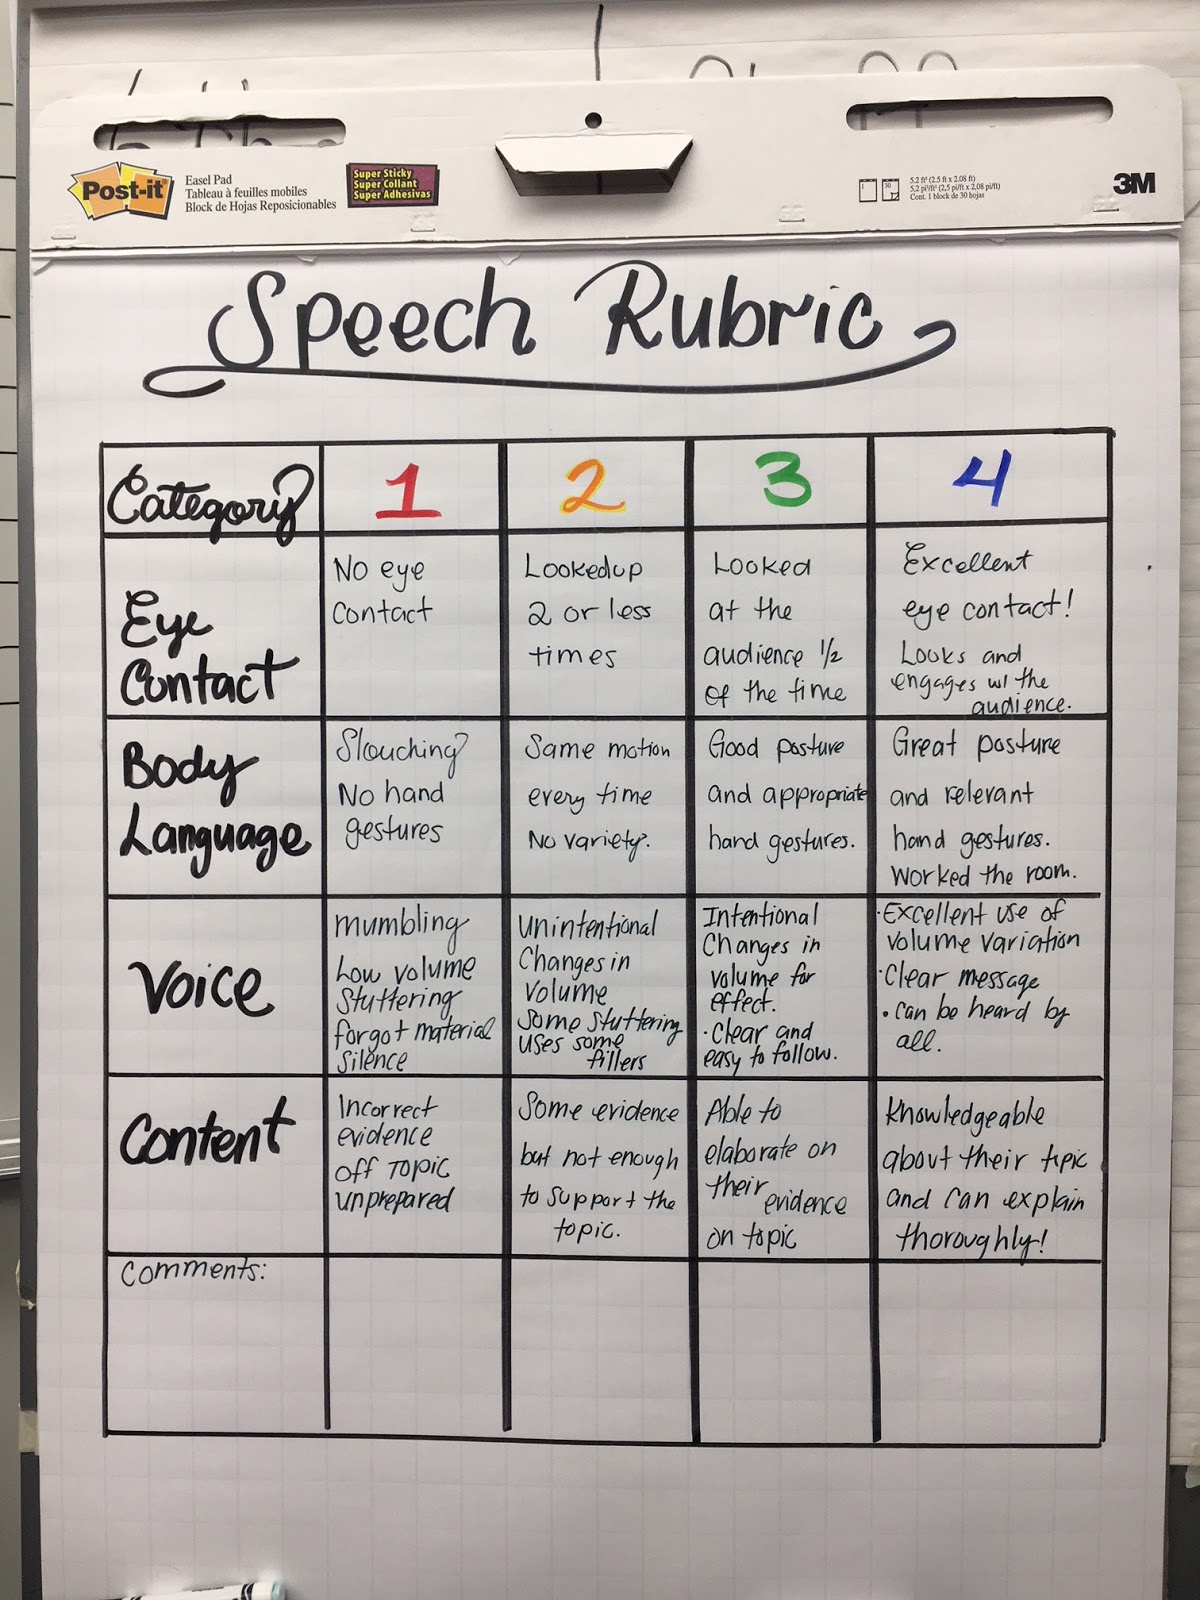 Post-it
Easel Pad
Tableau à feuilles mobiles
Block de Hojas Reposicionables
Super Sticky
Super Collant
Super Adhesivas
5.2 ft² (2.5 ft x 2.08 ft)
5,2 pi/ft² (2,5 pi/ft x 2,08 pi/ft)
Cont. 1 block de 30 hojas
3M
Speech Rubric
Category
1
2
3
4
Eye
Contact
No eye
contact
Lookedup
2 or less
times
Looked
at the
audience 1/2
of the time
Excellent
eye contact!
Looks and
engages w/ the
audience.
Body
Language
Slouching
No hand
gestures
Same motion
every time
No variety.
Good posture
and appropriate
hand gestures.
Great posture
and relevant
hand gestures.
Worked the room.
Voice
Mumbling
Low volume
Stuttering
forgot material
Silence
Unintentional
Changes in
volume
Some stuttering
uses some
fillers
Intentional
Changes in
volume for
effect.
• Clear and
easy to follow.
• Excellent use of
volume variation
• Clear message
• Can be heard by
all.
Content
Incorrect
evidence
off topic
unprepared
Some evidence
but not enough
to support the
topic.
Able to
elaborate on
their evidence
on topic
Knowledgeable
about their topic
and can explain
thoroughly!
Comments: